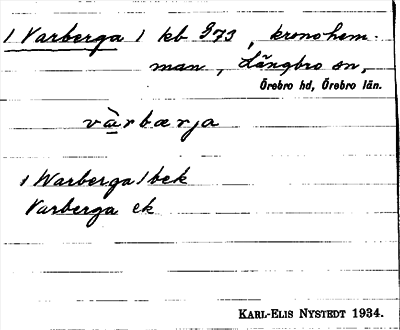 / Varberga / kb 973, kronohem-
man, Längbro sn,
Örebro hd, Örebro län.
varbærja
/ Warberga / bek
Varberga ek
KARL-ELIS NYSTEDT 1934.